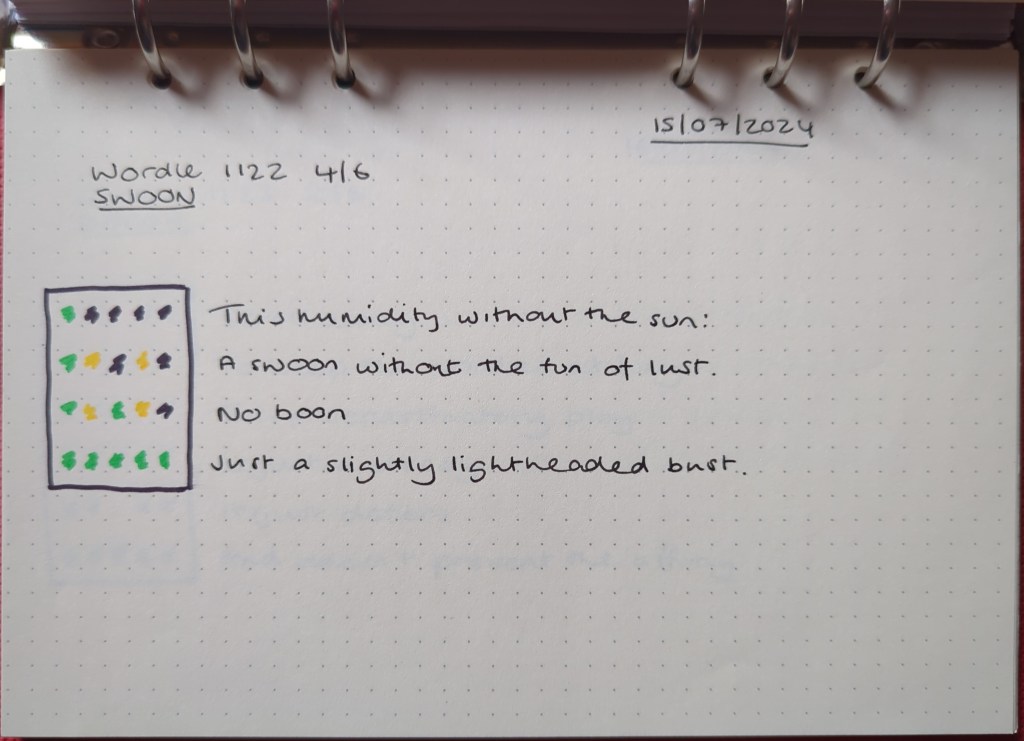 15/07/2024
Wordle 1122 4/6
SWOON
This humidity without the sun:
A swoon without the fun of lust.
No boon
Just a slightly lightheaded bust.